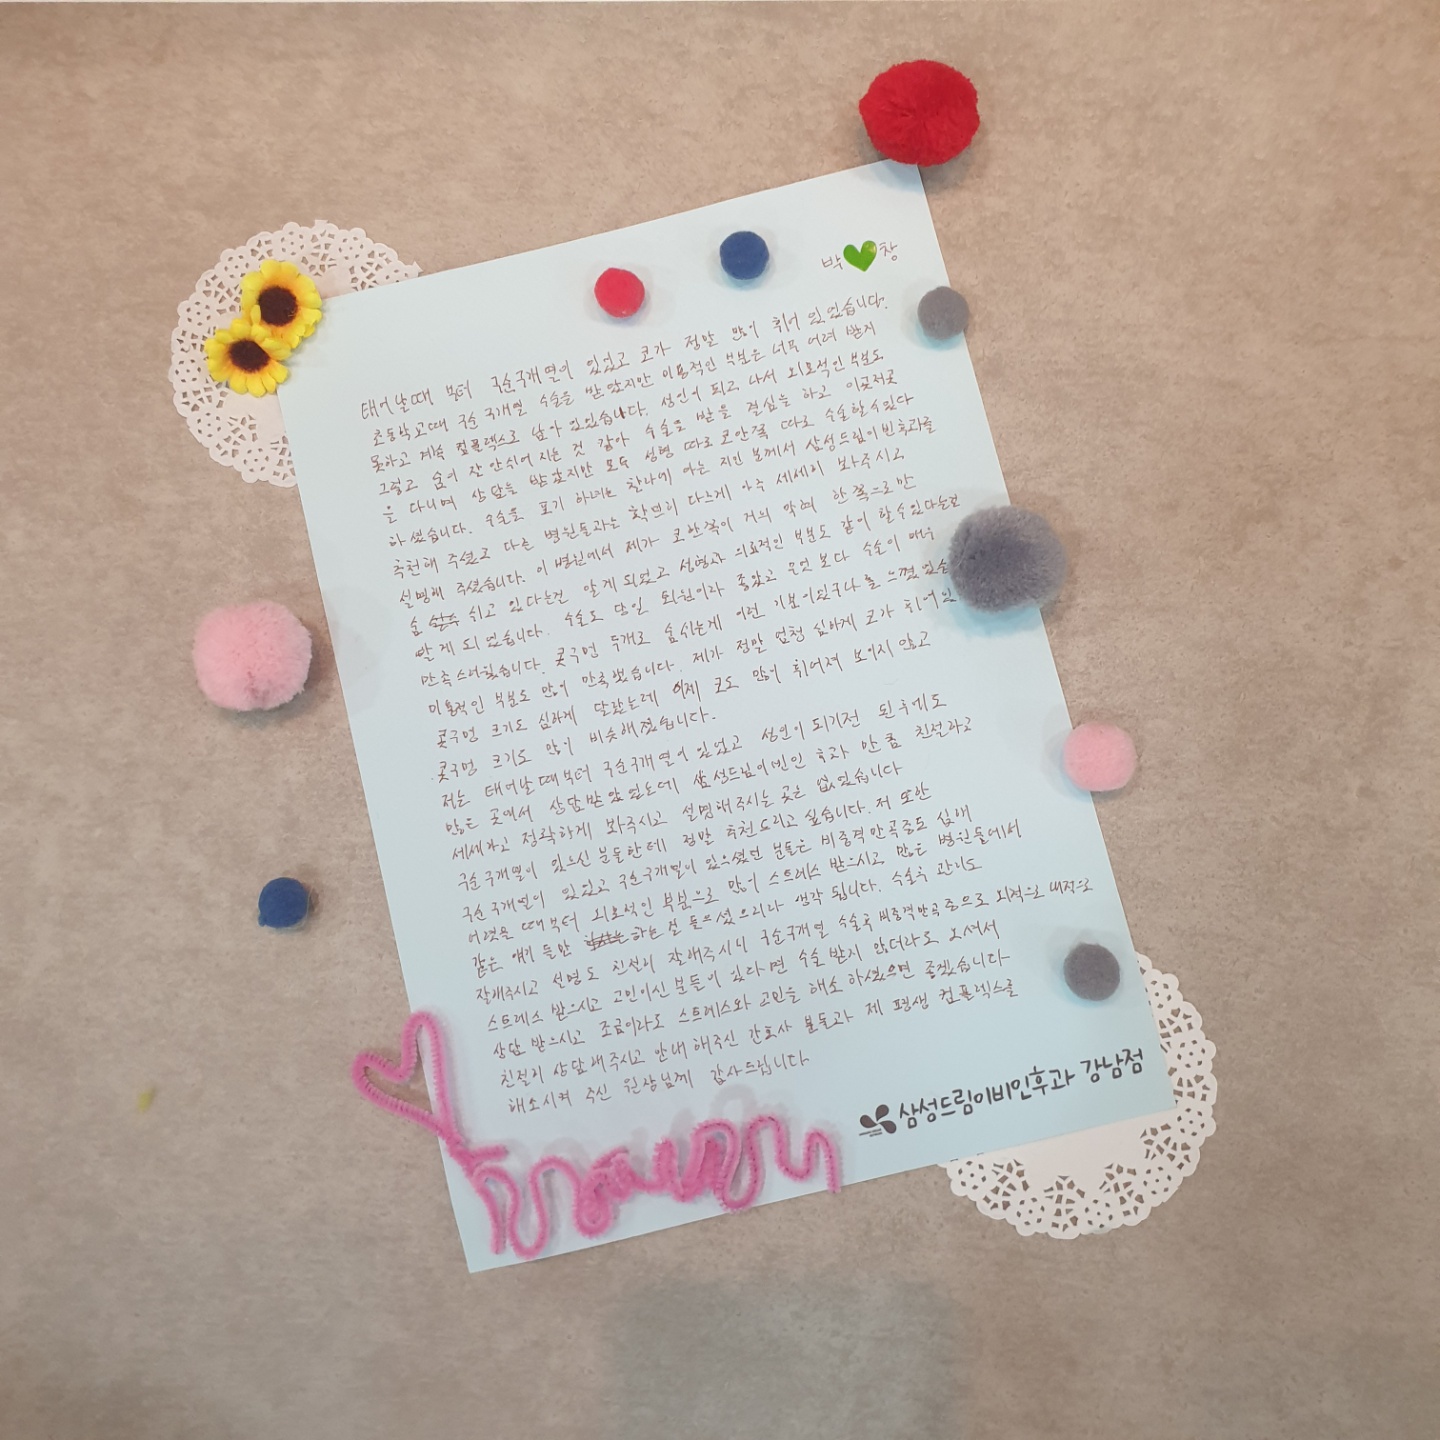 박 창
태어날때 부터 구순구개열이 있었고 코가 정말 많이 휘어 있었습니다.
초등학교때 구순구개열 수술을 받았지만 미용적인 부분은 너무 어려 받지
못하고 계속 컴플렉스로 남아있었습니다. 성인이 되고 나서 외모적인 부분도
그렇고 숨이 잘 안쉬어 지는 것 같아 수술을 받을 결심을 하고 이곳저곳
을 다니며 상담을 받았지만 모두 성형 따로 코안쪽 따로 수술할수있다
하셨습니다. 수술을 포기 하려는 찰나에 아는 지인 분께서 삼성드림이비인후과를
추천해 주셨고 다른 병원들과는 확연히 다르게 아주 세세히 봐주시고
설명해 주셨습니다. 이 병원에서 제가 코한쪽이 거의 막혀 한쪽으로만
숨 쉬고 있다는걸 알게되었고 성형과 의료적인 부분도 같이 할수있다는걸
알게 되었습니다. 수술도 당일 퇴원이라 좋았고 무엇보다 수술이 매우
만족스러웠습니다. 콧구멍 두개로 숨쉬는게 이런 기분이었구나를 느꼈었습
미용적인 부분도 많이 만족했습니다. 제가 정말 엄청 심하게 코가 휘어있
콧구멍 크기도 심하게 달랐는데 이제 코도 많이 휘어져 보이지 않고
콧구멍 크기도 많이 비슷해졌습니다.
저는 태어날때부터 구순구개열이 있었고 성인이 되기전 된후에도
많은 곳에서 상담받았었는데 삼성드림이비인 후과 만큼 친절하고
세세하고 정확하게 봐주시고 설명해주시는 곳은 없었습니다
구순구개열이 있으신 분들한테 정말 추천드리고 싶습니다. 저 또한
구순구개열이 있었고 구순구개열이 있으셨던 분들은 비중격만곡증도 심해
어렸을 때부터 외모적인 부분으로 많이 스트레스 받으시고 많은 병원들에서
같은 얘기 들만 하는걸 들으셨으리라 생각 됩니다. 수술후 관리도
잘해주시고 설명도 친절히 잘해주시니 구순구개열 수술후 비중격만곡증으로 외적으로 내적으로
스트레스 받으시고 고민이신 분들이 있다면 수술받지 않더라도 오셔서
상담 받으시고 조금이라도 스트레스와 고민을 해소 하셨으면 좋겠습니다
친절히 상담해주시고 안내해주신 간호사 분들과 제 평생 컴플렉스를
해소시켜 주신 원장님께 감사드립니다
삼성드림이비인후과 강남점